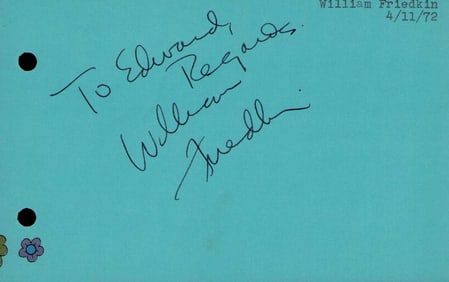 William Friedkin
4/11/72
To Edward,
Regards.
William
Friedkin